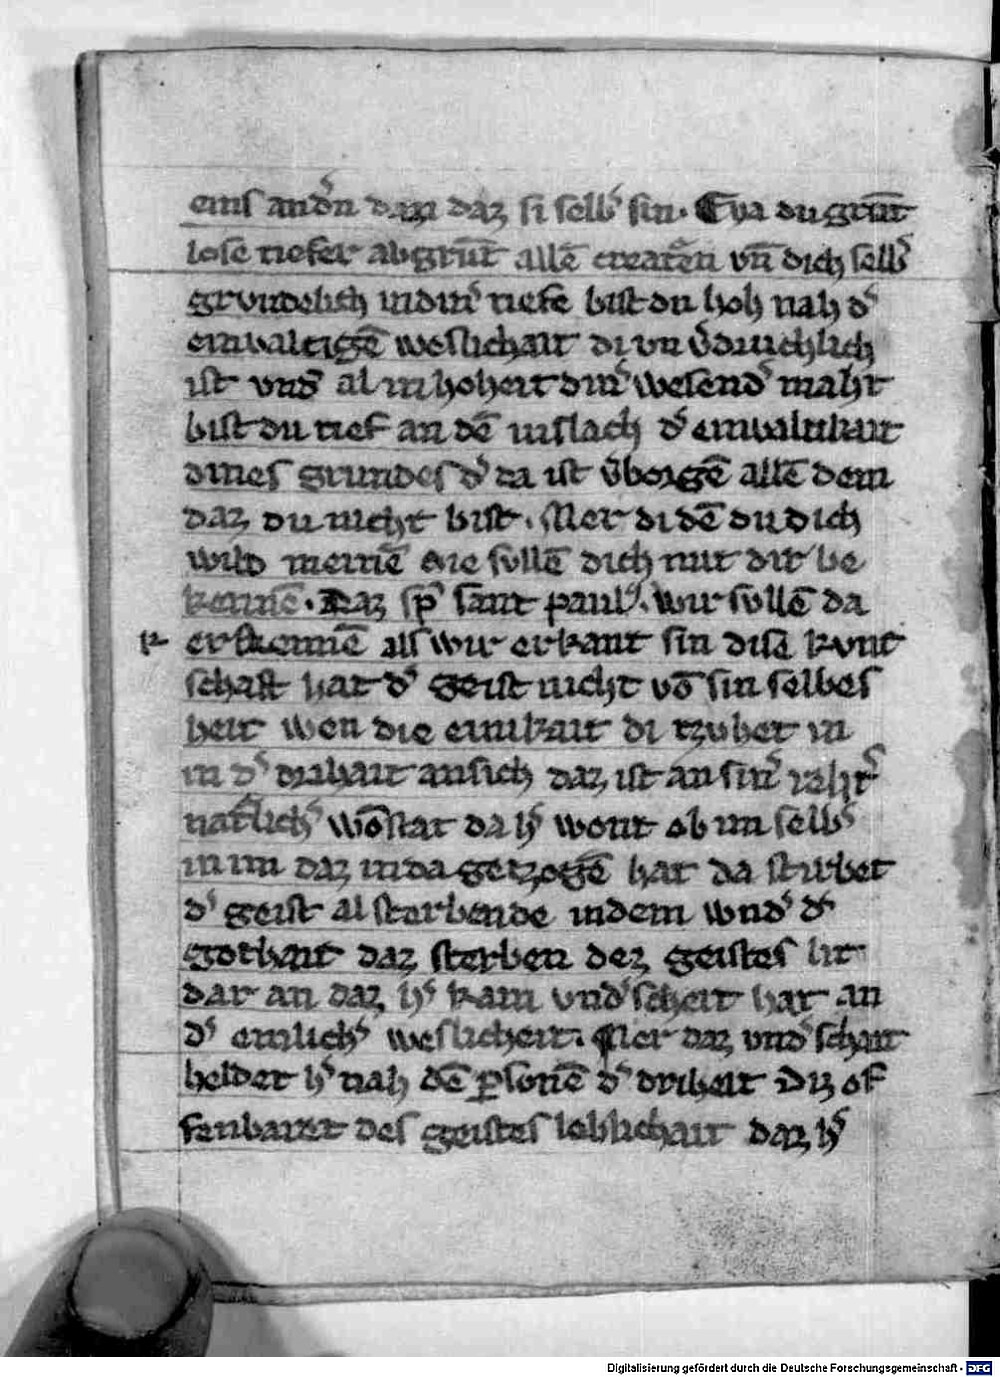 eins andn̄ dan daz si selb᾽ sin. Eya du grūt
lose tiefer abgrūt allē creatēn vn̄ dich selb᾽
grundelich in din᾽ tiefe bist du hoh nah d᾽
einvaltigē weslichait di vn
ist vnd᾽ al in hoheit din᾽ wesend᾽ maht
bist du tief an dē d᾽ einvaltikait
dines grundes d᾽ da ist v᾽borgē allē dem
daz du nicht bist. Mer di dē du dich
wild meinē die sullē dich mit dir be
kennē. Daz sp᾽ sant paul᾽. wir sullē da
er kennē als wir erkant sin disē kunt
schaft hat d᾽ geist nicht vō sin selbes
heit wen die einikait di tzuhet in
in d᾽ drihait an sich daz ist an sin᾽ reht᾽
natᵉlich᾽ wōstat da h᾽ wont ob im selb᾽
in im daz in da getzogē hat da stirbet
d᾽ geist al sterbende in dem wnd᾽ d᾽
gothait daz sterben dez geistes lit
dar an daz h᾽ kain vnd᾽scheit hat an
d᾽ einlich᾽ weslicheit. Mer daz vnd᾽schait
heldet h᾽ nah dē p̱sonē d᾽ driheit Diz of
fenbaret des geistes loblichait daz h᾽
Digitalisierung gefördert durch die Deutsche Forschungsgemeinschaft - DFG